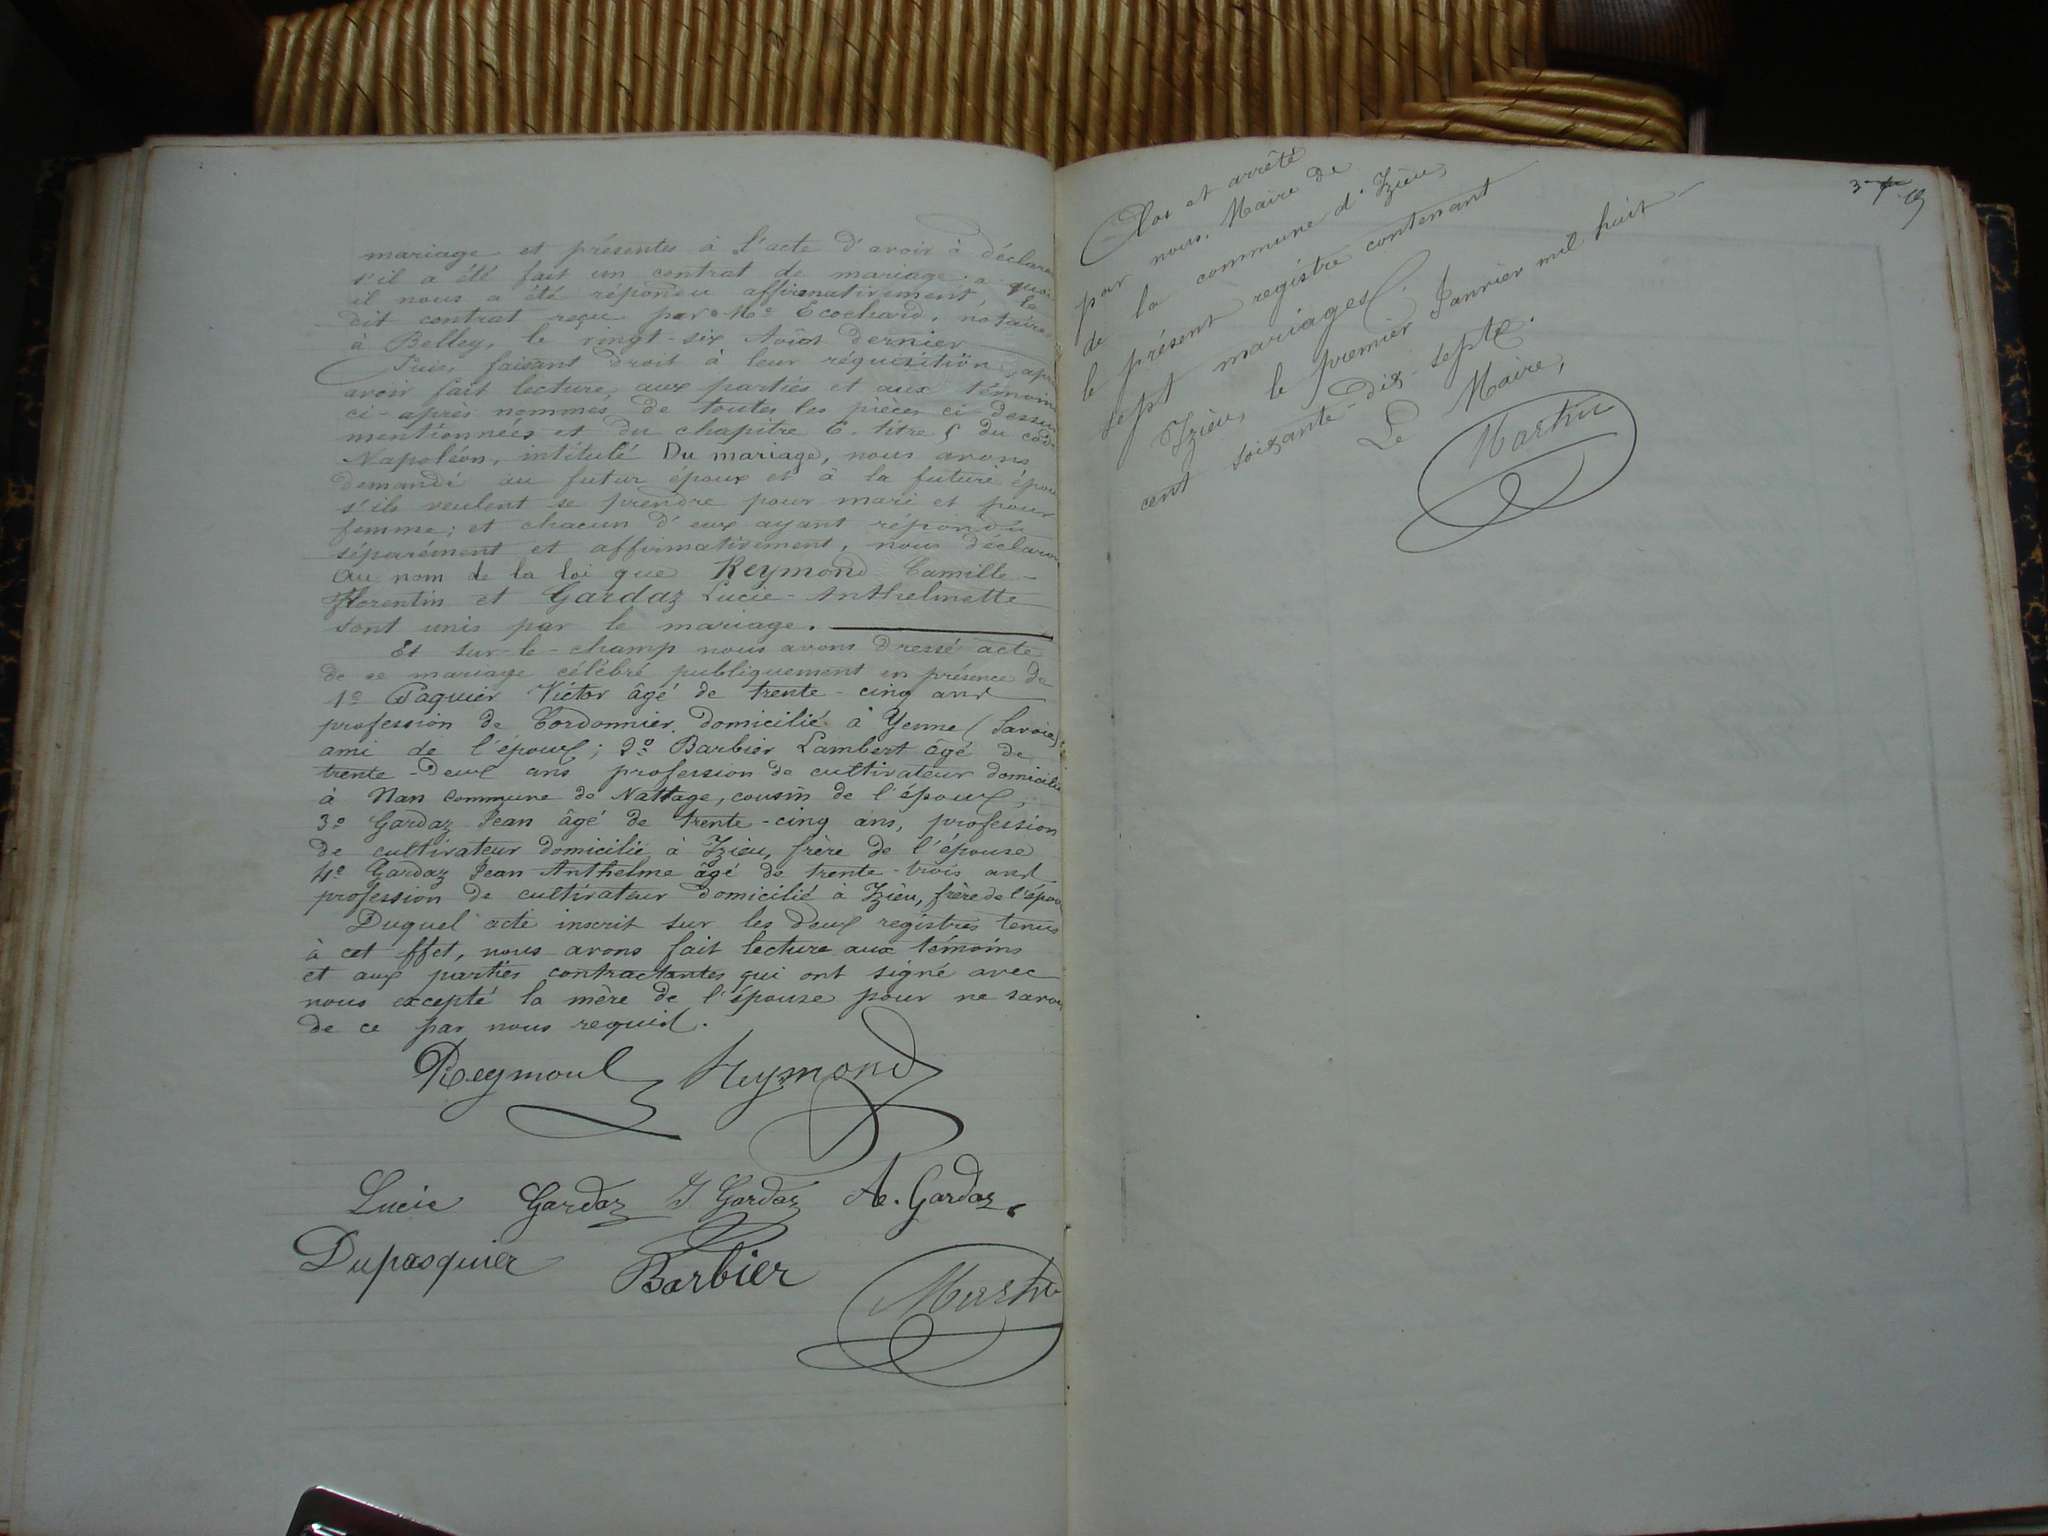 mariage et présentes à l'acte d'avoir à déclarer
s'il a été fait un contrat de mariage; a quoi
il nous a été répondu affirmativement, le
dit contrat reçu par Me Ecochard, notaire
à Belley, le vingt-six Août dernier
Puis, faisant droit à leur réquisition, après
avoir fait lecture, aux parties et aux témoins
ci-après nommés, de toutes les pièces ci-dessus
mentionnées et du chapitre 6. titre 5 du code
Napoléon, intitulé Du mariage, nous avons
demandé au futur époux et à la future épouse
s'ils veulent se prendre pour mari et pour
femme; et chacun d'eux ayant répondu
séparément et affirmativement, nous déclarons
au nom de la loi que Reymond Camille-
Florentin et Gardaz Lucie-Anthelmette
sont unis par le mariage.
Et sur-le-champ nous avons dressé acte
de ce mariage célébré publiquement en présence de
1º Paquier Victor âgé de trente-cinq ans
profession de Cordonnier, domicilié à Yenne (Savoie)
ami de l'époux; 2º Barbier Lambert âgé de
trente-deux ans profession de cultivateur domicilié
à Nan commune de Nattage, cousin de l'époux,
3º Gardaz Jean âgé de trente-cinq ans, profession
de cultivateur domicilié à Izieu, frère de l'épouse
4º Gardaz Jean-Anthelme âgé de trente-trois ans
profession de cultivateur domicilié à Izieu, frère de l'épou
Duquel acte inscrit sur les deux registres tenus
à cet effet, nous avons fait lecture aux témoins
et aux parties contractantes qui ont signé avec
nous excepté la mère de l'épouse pour ne savoir
de ce par nous requis.
Reymond Reymond
Lucie Gardaz J Gardaz A. Gardaz
Dupasquier Barbier
Martin
Clos et arrêté
par nous, Maire de
de la commune d'Izieu,
le présent registre contenant
sept mariages.
Izieu, le premier Janvier mil huit
cent soixante-dix-sept.
Le Maire,
Martin